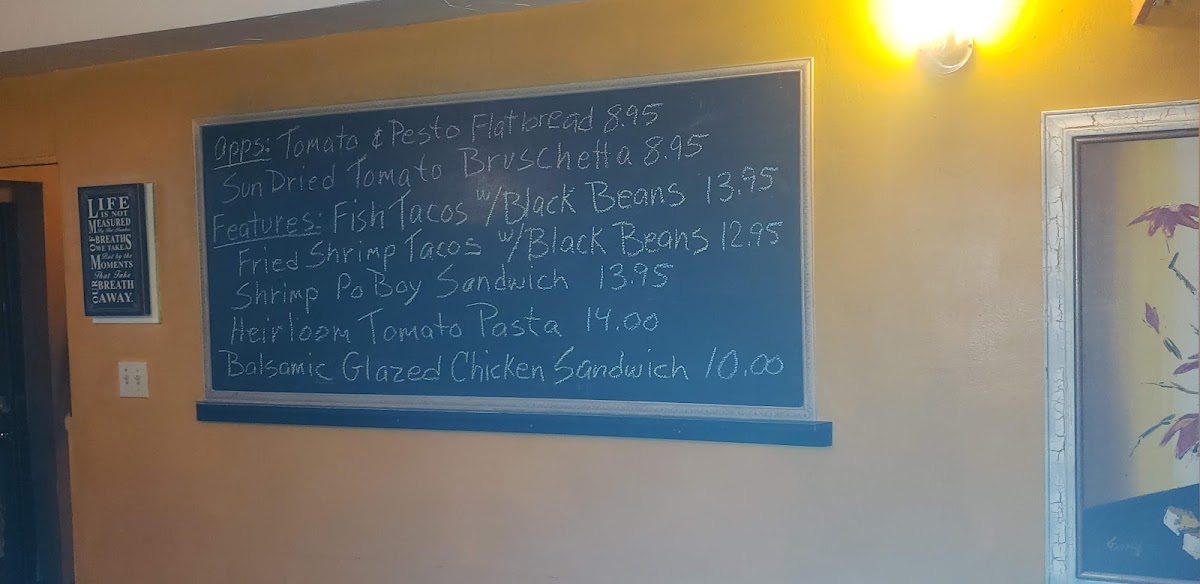 apps: Tomato & Pesto Flatbread 8.95
Sun Dried Tomato Bruschetta 8.95
Features: Fish Tacos w/Black Beans 13.95
Fried Shrimp Tacos w/Black Beans 12.95
Shrimp Po Boy Sandwich 13.95
Heirloom Tomato Pasta 14.00
Balsamic Glazed Chicken Sandwich 10.00
LIFE
IS NOT
MEASURED
By the Number
OF BREATHS
WE TAKE
But by the
MOMENTS
That Take
OUR BREATH
AWAY.